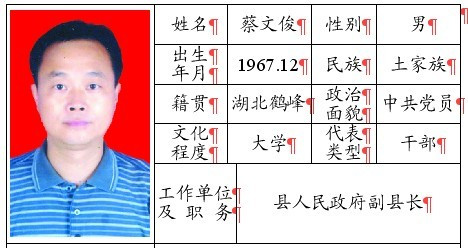 姓名 蔡文俊 性别 男
出生年月 1967.12 民族 土家族
籍贯 湖北鹤峰 政治面貌 中共党员
文化程度 大学 代表类型 干部
工作单位及职务 县人民政府副县长